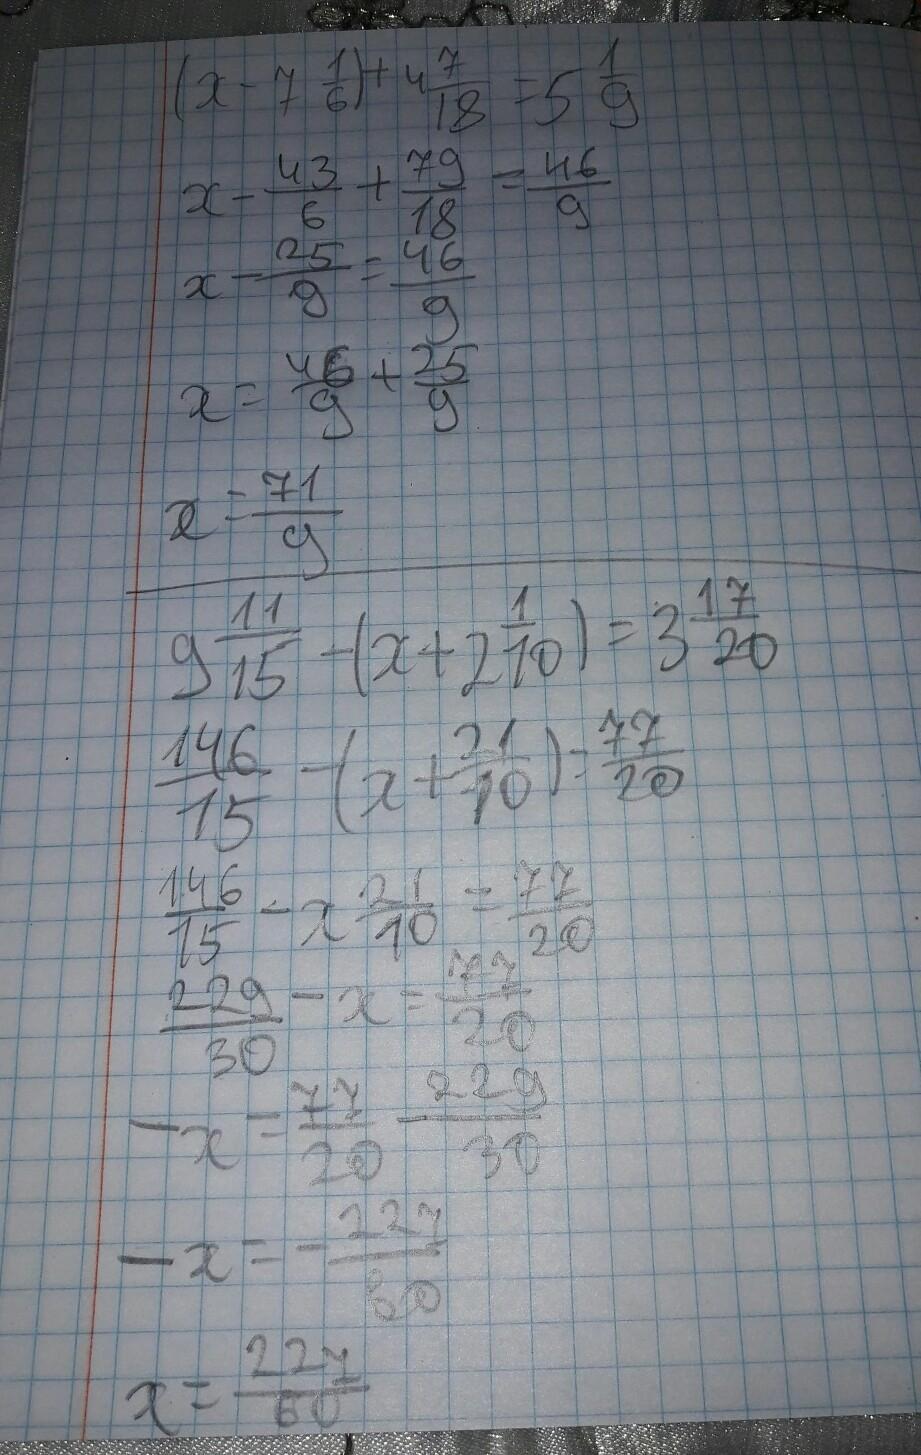 (x - 7 1/6) + 4 7/18 = 5 1/9
x - 43/6 + 79/18 = 46/9
x - 25/9 = 46/9
x = 46/9 + 25/9
x = 71/9
9 11/15 - (x + 2 1/10) = 3 17/20
146/15 - (x + 21/10) = 77/20
146/15 - x 21/10 = 77/20
229/30 - x = 77/20
-x = 77/20 - 229/30
-x = - 227/60
x = 227/60